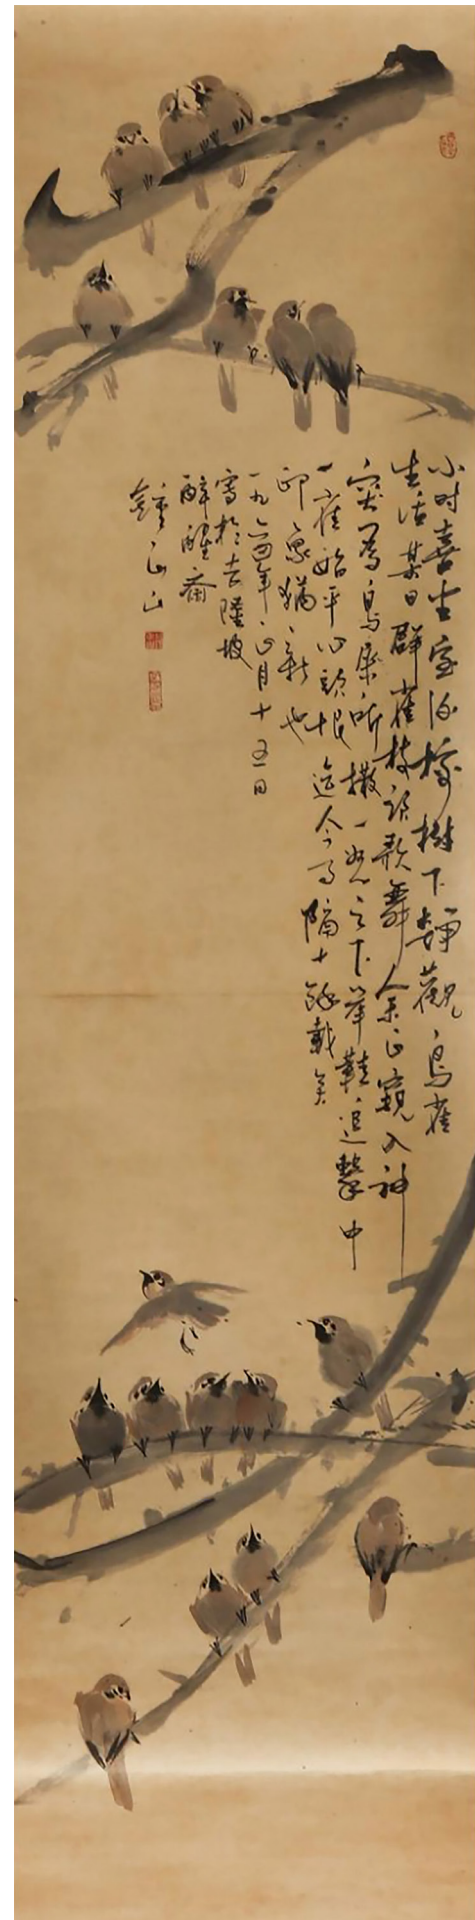 小时喜坐室后橡树下静觀鳥雀
生活某日群雀枝頭歌舞余正窺入神
突為鳥糞所撒一怒之下举鞋追擊中
一雀始平心頭恨迄今事隔十餘載矣
印象猶新也
一九六四年正月十五日
寫於吉隆坡
醉醒斋
鍾正山